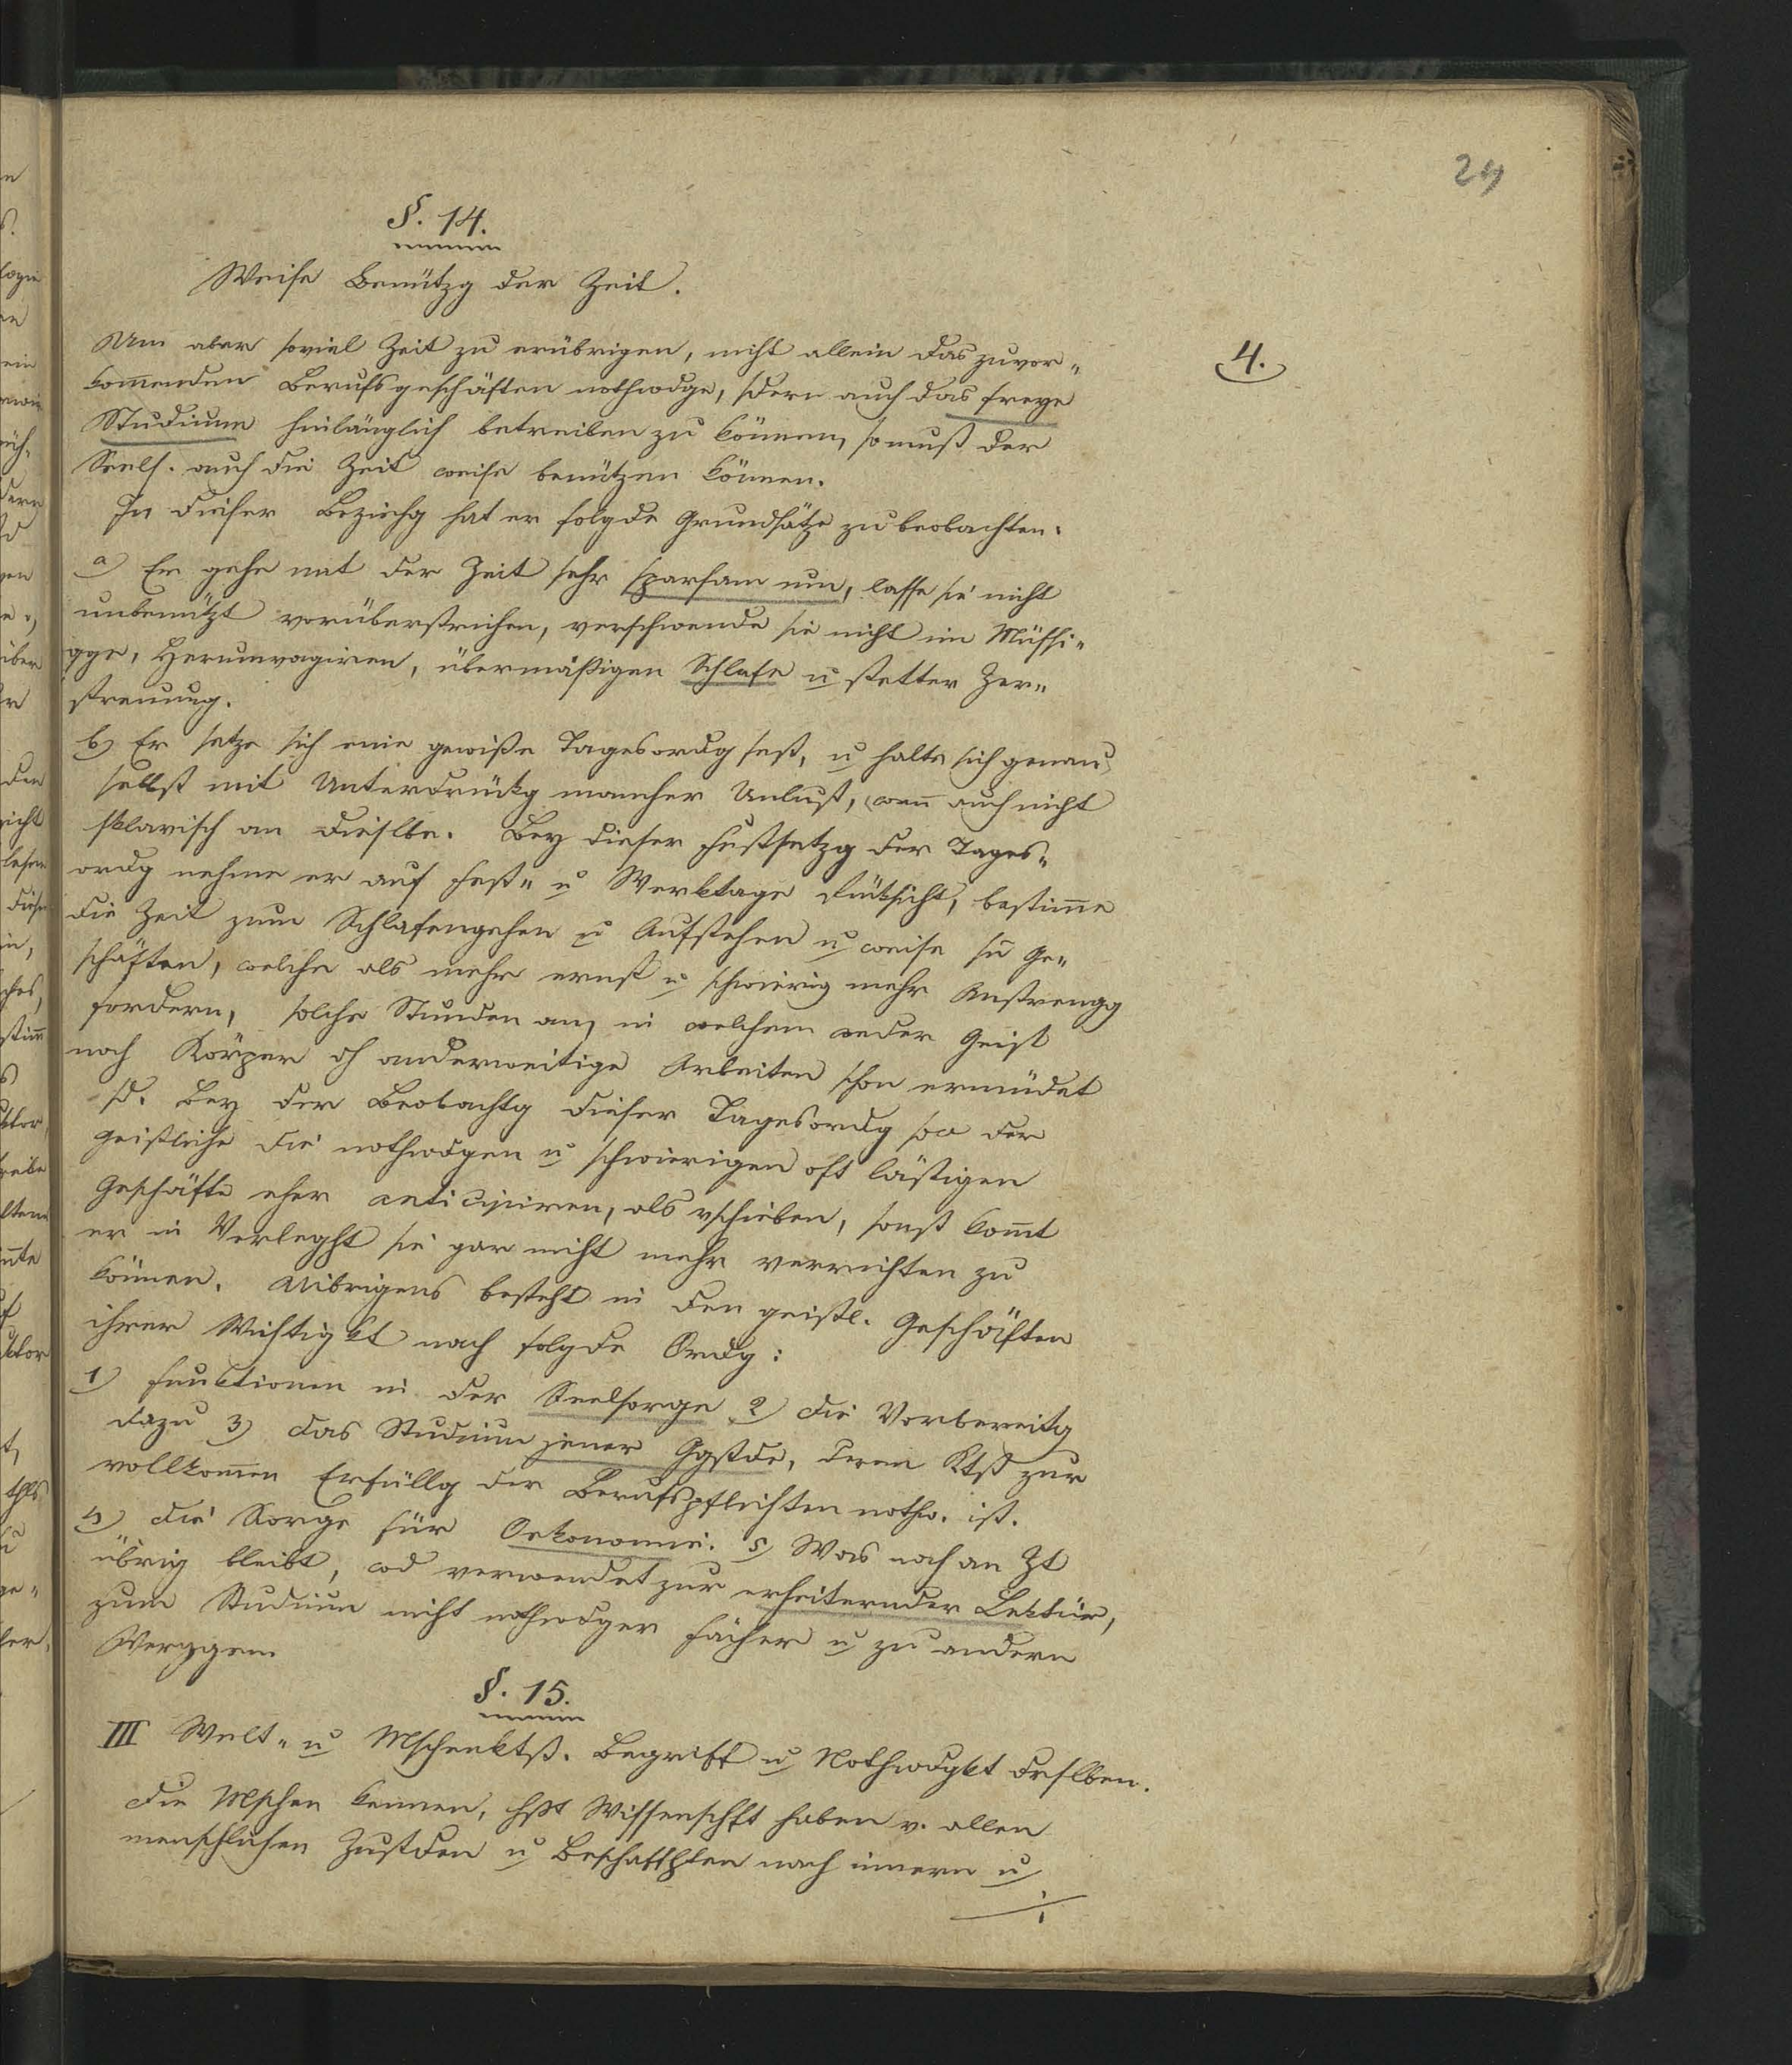 24
§. 14.
Weise Benützg der Zeit.
Um aber soviel Zeit zu erübrigen, nicht allein das zuvor„
4.
kom̅enden Berufsgeschäften nothwdge, sdern auch das freye
Studium hinlänglich betreiben zu können, so muß der
Seels. auch die Zeit weise benützen können.
In dieser Beziehg hat er folgde Grundsätze zu beobachten.
a) Er gehe mit der Zeit sehr sparsam um, lasse sie nicht
unbenützt vorüberstreichen, verschwende sie nicht im Müssi„
gge, Herumvagiren, übermäßigen Schlafe u stetter Zer„
streuung.
b) Er setze sich eine gewiße Tagesordg fest, u halte sich genau
selbst mit Unterdrückg mancher Unlust, wen̅ auch nicht
sklavisch an dieslbe. Bey dieser Festsetzg der Tages„
ordg nehme er auf Fest„ u Werktage Rücksicht, bestim̅e
die Zeit zum Schlafengehen u Aufstehen u weise sn Ge„
schäften, welche als mehr ernst u schwierig mehr Anstrengg
fordern, solche Stunden an, in welchem weder Geist
noch Körper dh anderweitige Arbeiten schon ermüdet
sd. Bey der Beobachtg dieser Tagesordg soll der
Geistliche die nothwdgen u schwierigen oft lästigen
Geschäfte eher anticipiren, als vschieben, sonst kom̅t
er in Verleght sie gar nicht mehr verrichten zu
können. Uibrigens besteht in den geistl. Geschäften
ihrer Wichtigkt nach folgde Ordg:
1) Funktionen in der Seelsorge 2) die Vorbereitg
dazu 3) das Studium jener Ggstde, deren Ktß zur
vollkom̅en Erfüllg der Berufspflichten nothw. ist.
4) die Sorge für Oekonomie. 5) Was noch an Zt
übrig bleibt, wd verwendet zur erheiternder Lektür,
zum Studium nicht nothwdger Fächer u zu andern
Vergggen.
§. 15.
III Welt„ u Mschenktß. Begriff u Nothwdgkt drslben.
Die Mschen kennen, hßt Wissenschft haben v. allen
menschlichen Zustden u Beschaffhten nach innern u
./.